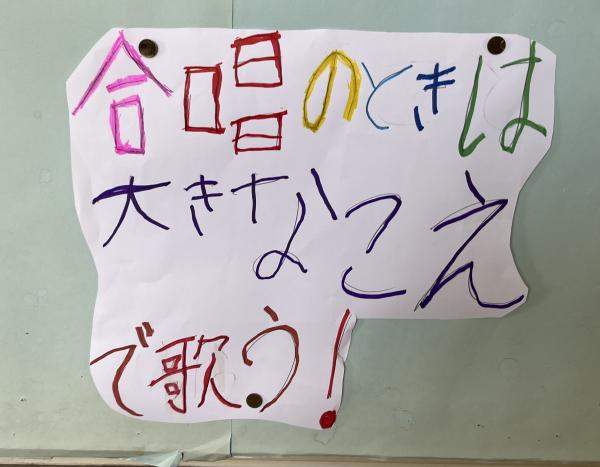 合唱のときは
大きなこえ
で歌う!